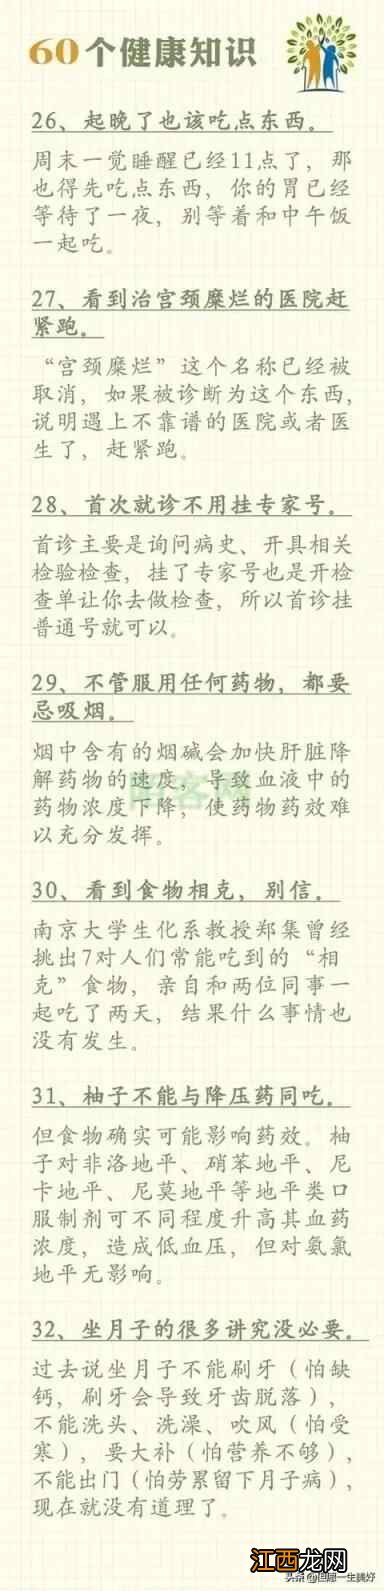 60个健康知识
26、起晚了也该吃点东西。
周末一觉睡醒已经11点了，那
也得先吃点东西，你的胃已经
等待了一夜，别等着和中午饭
一起吃。
27、看到治宫颈糜烂的医院赶
紧跑。
“宫颈糜烂”这个名称已经被
取消，如果被诊断为这个东西，
说明遇上不靠谱的医院或者医
生了，赶紧跑。
28、首次就诊不用挂专家号。
首诊主要是询问病史、开具相关
检验检查，挂了专家号也是开检
查单让你去做检查，所以首诊挂
普通号就可以。
29、不管服用任何药物，都要
忌吸烟。
烟中含有的烟碱会加快肝脏降
解药物的速度，导致血液中的
药物浓度下降，使药物药效难
以充分发挥。
30、看到食物相克，别信。
南京大学生化系教授郑集曾经
挑出7对人们常能吃到的“相
克”食物，亲自和两位同事一
起吃了两天，结果什么事情也
没有发生。
31、柚子不能与降压药同吃。
但食物确实可能影响药效。柚
子对非洛地平、硝苯地平、尼
卡地平、尼莫地平等地平类口
服制剂可不同程度升高其血药
浓度，造成低血压，但对氨氯
地平无影响。
32、坐月子的很多讲究没必要。
过去说坐月子不能刷牙（怕缺
钙，刷牙会导致牙齿脱落），
不能洗头、洗澡、吹风（怕受
寒），要大补（怕营养不够），
不能出门（怕劳累留下月子病），
现在就没有道理了。
江西龙网